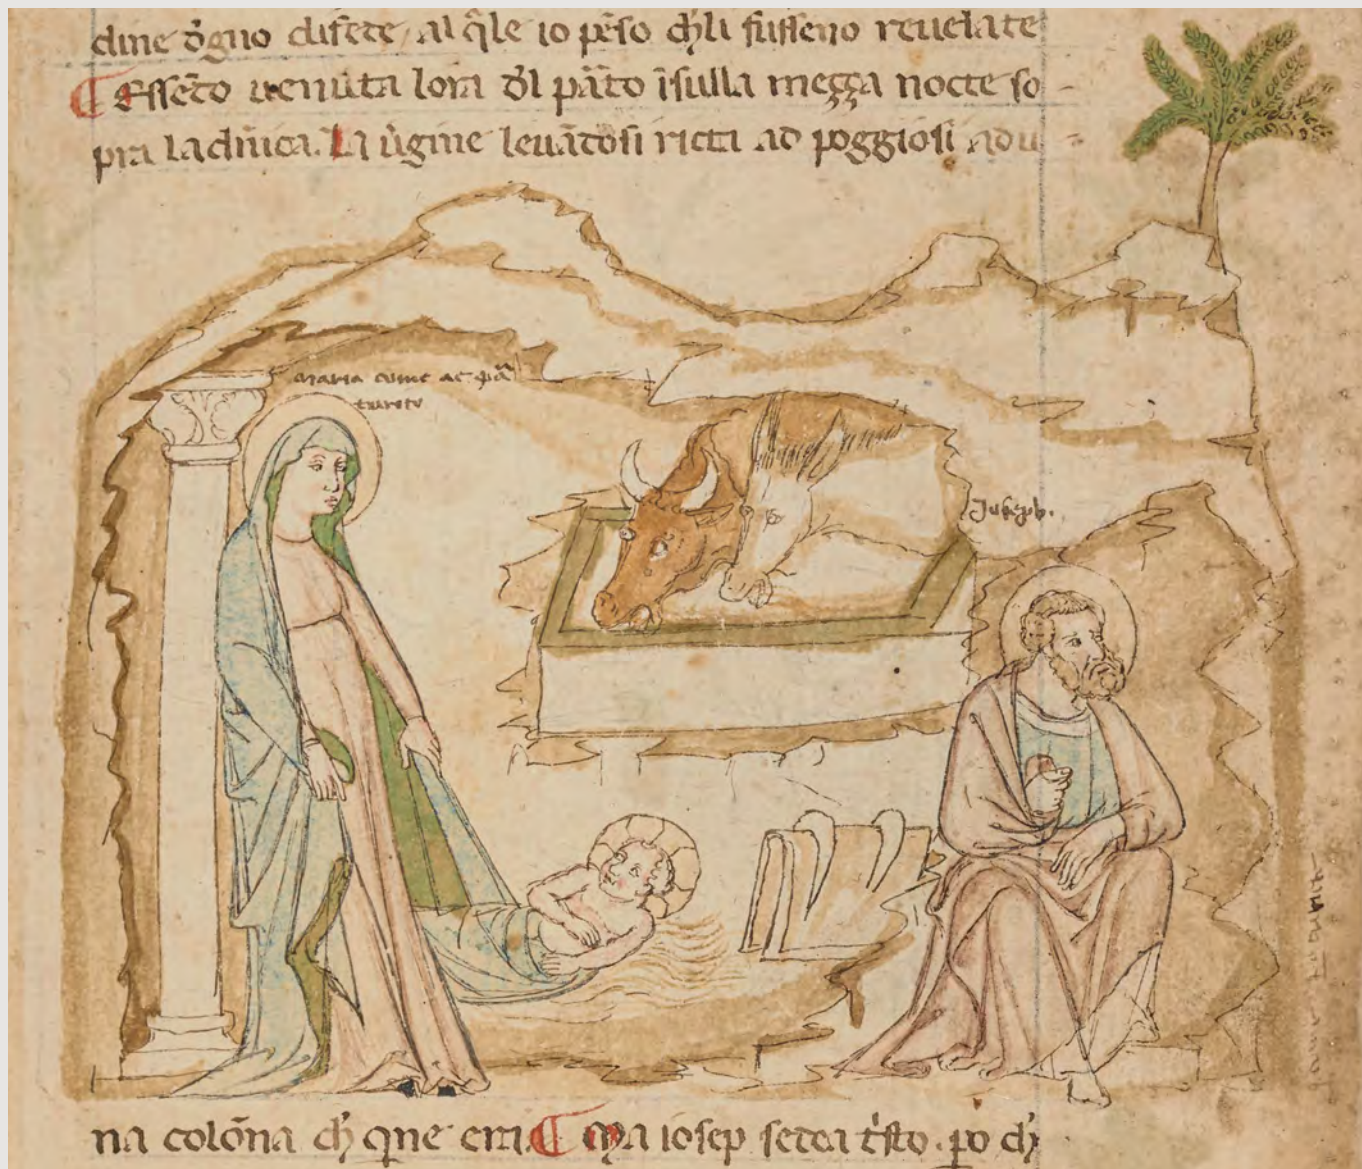 dine d̄gno disete, al q̄le io pēso ch̄li fusseno reuelate
Essēdo uenuta lora d̄l pāto īsulla meçça nocte so
pra ladn̄ica. La ûgine leuādosi ricta ad poggiosi adu
maria come ae pā
turito
Joseph.
na colōna ch̄ q̄ne era. Ma iosep sedea t'sto. po ch̄